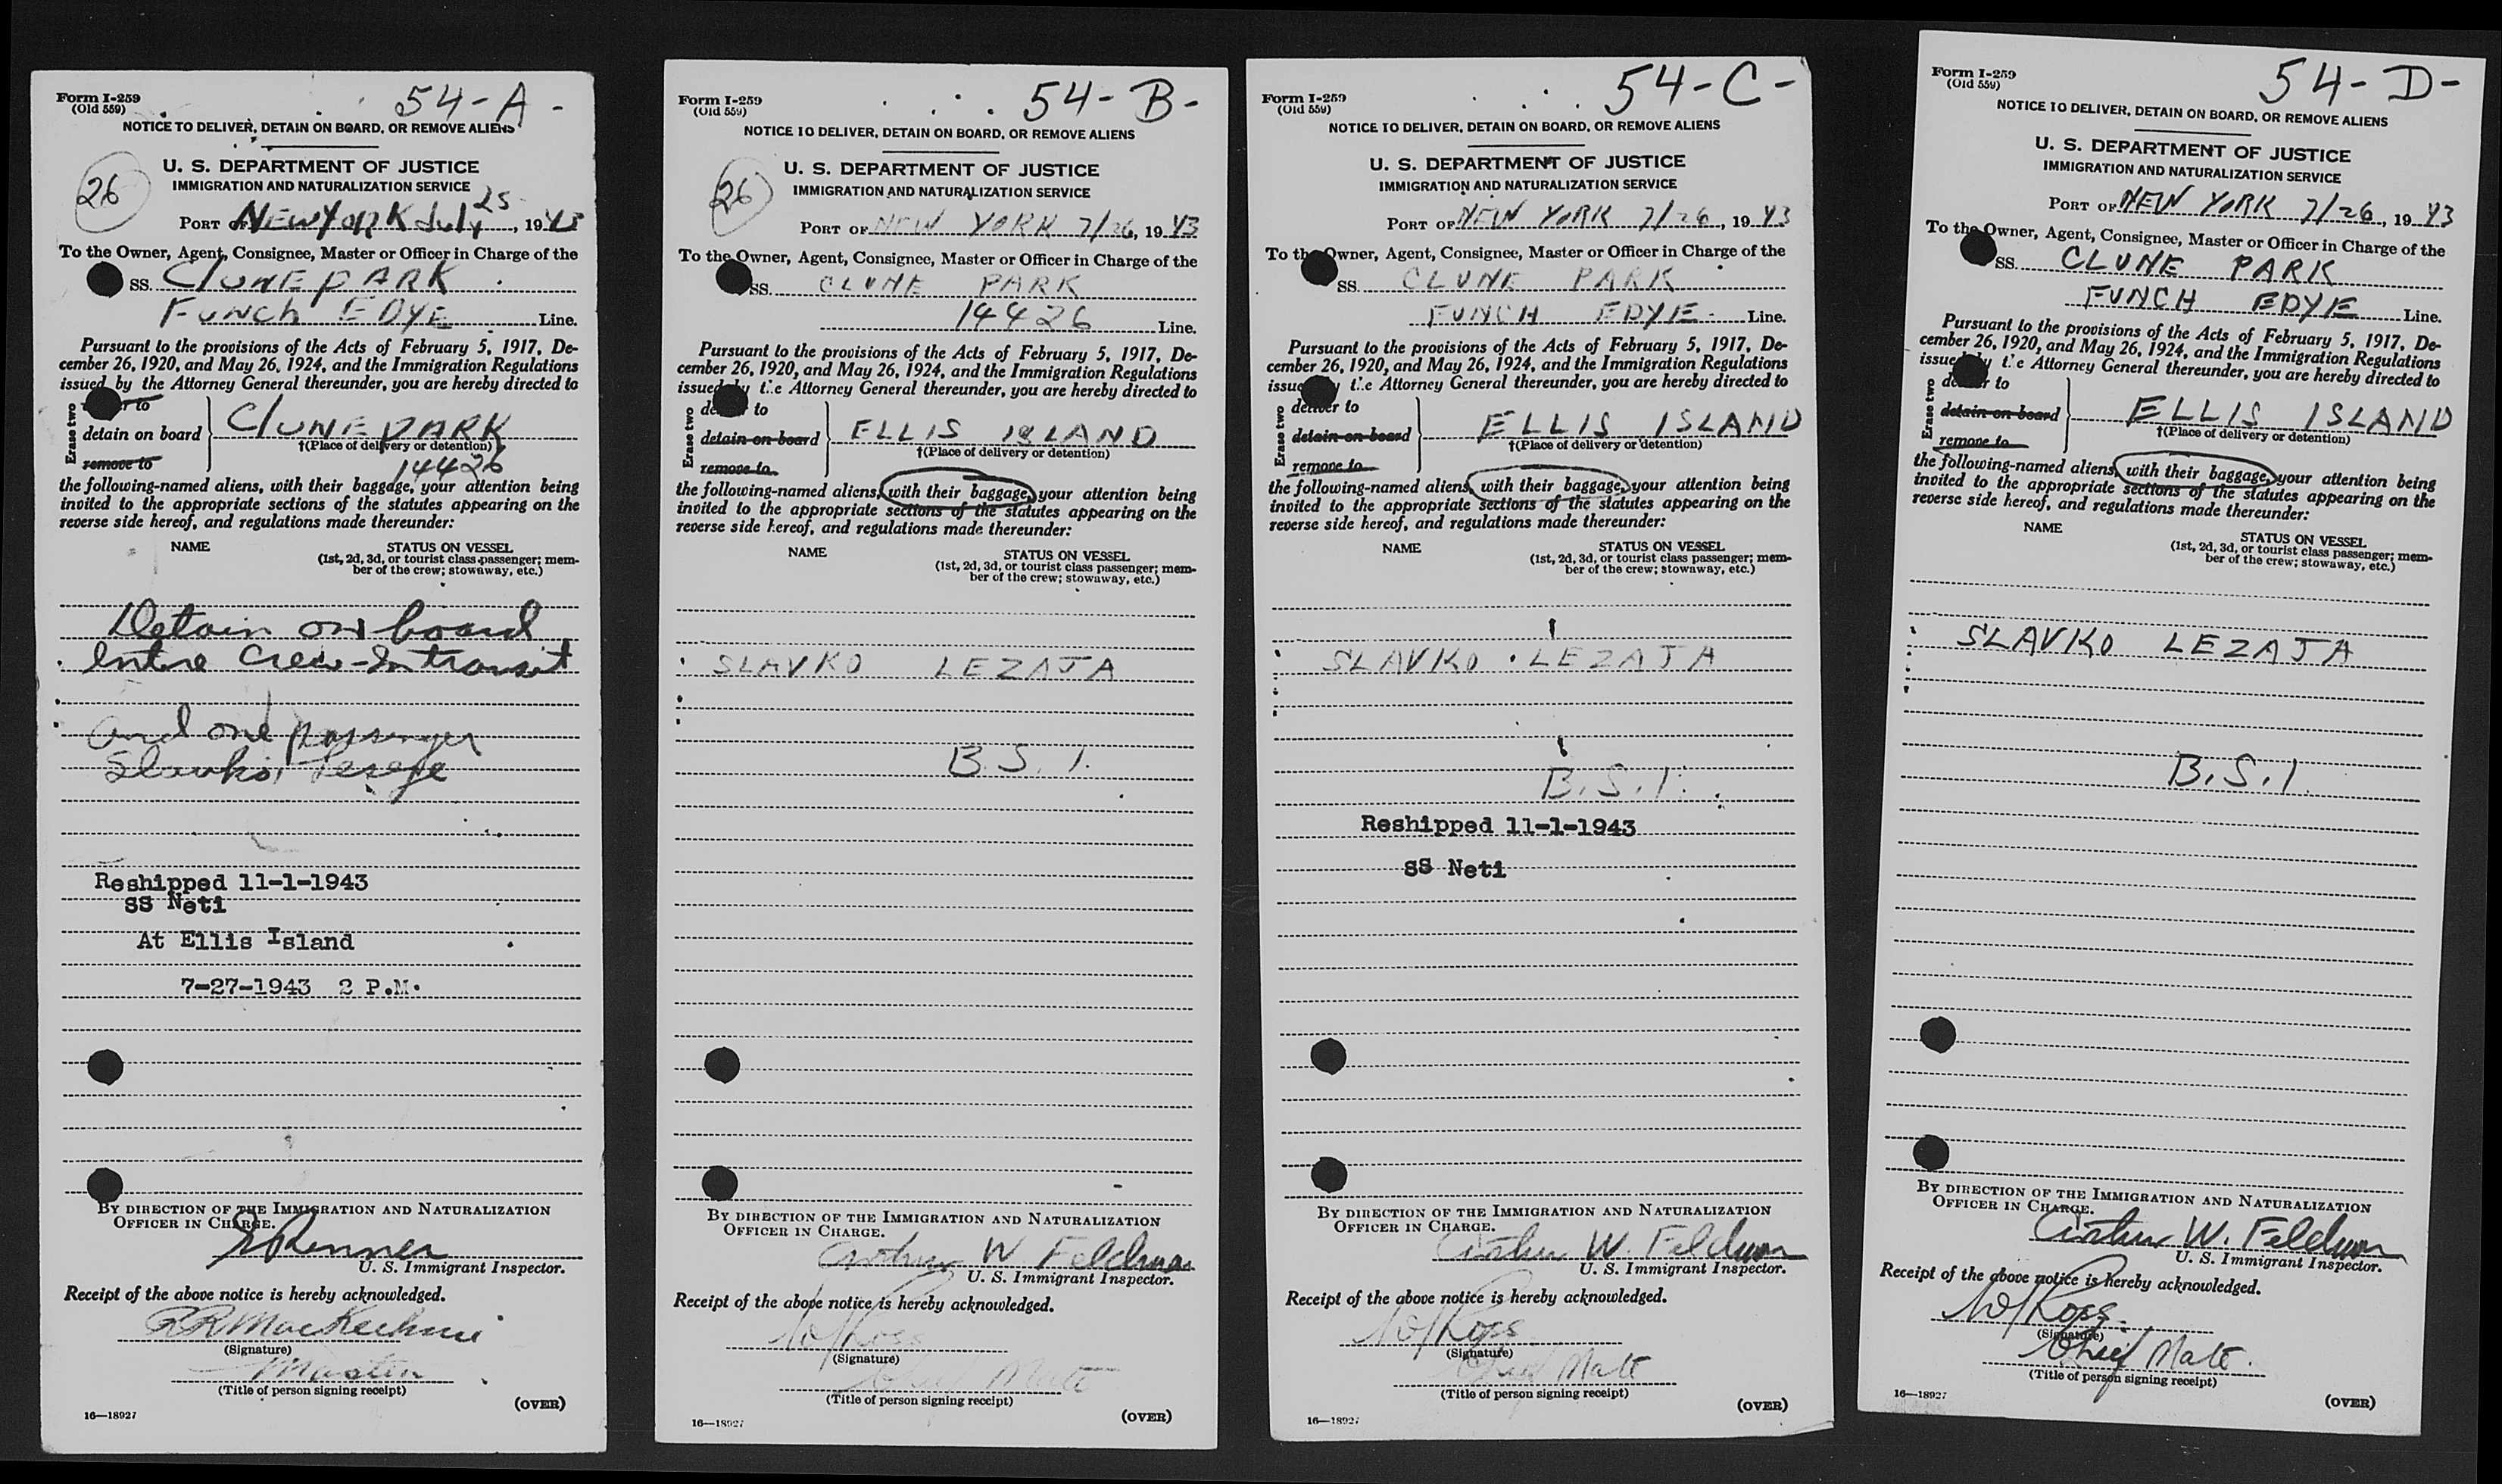 54-A-
Form I-259
(Old 559)
NOTICE TO DELIVER, DETAIN ON BOARD, OR REMOVE ALIENS
U. S. DEPARTMENT OF JUSTICE
IMMIGRATION AND NATURALIZATION SERVICE
26
PORT OF New York July 25, 1943
To the Owner, Agent, Consignee, Master or Officer in Charge of the
SS. Clune PARK
Funch EDYE Line.
Pursuant to the provisions of the Acts of February 5, 1917, De-
cember 26, 1920, and May 26, 1924, and the Immigration Regulations
issued by the Attorney General thereunder, you are hereby directed to
Erase two
deliver to
detain on board
remove to
Clune PARK
†(Place of delivery or detention)
14426
the following-named aliens, with their baggage, your attention being
invited to the appropriate sections of the statutes appearing on the
reverse side hereof, and regulations made thereunder:
NAME
STATUS ON VESSEL
(1st, 2d, 3d, or tourist class passenger; mem-
ber of the crew; stowaway, etc.)
Detain on board
Entire Crew-Intransit
and one passenger
Slavko
Reshipped 11-1-1943
SS Neti
At Ellis Island
7-27-1943 2 P.M.
BY DIRECTION OF THE IMMIGRATION AND NATURALIZATION
OFFICER IN CHARGE.
Renner
U. S. Immigrant Inspector.
Receipt of the above notice is hereby acknowledged.
RR MacKechnie
(Signature)
Master
(Title of person signing receipt)
(OVER)
16—18927
54-B-
Form I-259
(Old 559)
NOTICE TO DELIVER, DETAIN ON BOARD, OR REMOVE ALIENS
U. S. DEPARTMENT OF JUSTICE
IMMIGRATION AND NATURALIZATION SERVICE
26
PORT OF NEW YORK 7/26, 1943
To the Owner, Agent, Consignee, Master or Officer in Charge of the
SS. CLUNE PARK
14426 Line.
Pursuant to the provisions of the Acts of February 5, 1917, De-
cember 26, 1920, and May 26, 1924, and the Immigration Regulations
issued by the Attorney General thereunder, you are hereby directed to
Erase two
deliver to
detain on board
remove to
ELLIS ISLAND
†(Place of delivery or detention)
the following-named aliens, with their baggage, your attention being
invited to the appropriate sections of the statutes appearing on the
reverse side hereof, and regulations made thereunder:
NAME
STATUS ON VESSEL
(1st, 2d, 3d, or tourist class passenger; mem-
ber of the crew; stowaway, etc.)
SLAVKO LEZAJA
B.S.I.
BY DIRECTION OF THE IMMIGRATION AND NATURALIZATION
OFFICER IN CHARGE.
Arthur W Feldman
U. S. Immigrant Inspector.
Receipt of the above notice is hereby acknowledged.
Ross
(Signature)
Chief Mate
(Title of person signing receipt)
(OVER)
16—18927
54-C-
Form I-259
(Old 559)
NOTICE TO DELIVER, DETAIN ON BOARD, OR REMOVE ALIENS
U. S. DEPARTMENT OF JUSTICE
IMMIGRATION AND NATURALIZATION SERVICE
PORT OF NEW YORK 7/26, 1943
To the Owner, Agent, Consignee, Master or Officer in Charge of the
SS. CLUNE PARK
FUNCH EDYE Line.
Pursuant to the provisions of the Acts of February 5, 1917, De-
cember 26, 1920, and May 26, 1924, and the Immigration Regulations
issued by the Attorney General thereunder, you are hereby directed to
Erase two
deliver to
detain on board
remove to
ELLIS ISLAND
†(Place of delivery or detention)
the following-named aliens, with their baggage, your attention being
invited to the appropriate sections of the statutes appearing on the
reverse side hereof, and regulations made thereunder:
NAME
STATUS ON VESSEL
(1st, 2d, 3d, or tourist class passenger; mem-
ber of the crew; stowaway, etc.)
SLAVKO LEZAJA
B.S.I.
Reshipped 11-1-1943
SS Neti
BY DIRECTION OF THE IMMIGRATION AND NATURALIZATION
OFFICER IN CHARGE.
Arthur W. Feldman
U. S. Immigrant Inspector.
Receipt of the above notice is hereby acknowledged.
Ross
(Signature)
Chief Mate
(Title of person signing receipt)
(OVER)
16—18927
54-D-
Form I-259
(Old 559)
NOTICE TO DELIVER, DETAIN ON BOARD, OR REMOVE ALIENS
U. S. DEPARTMENT OF JUSTICE
IMMIGRATION AND NATURALIZATION SERVICE
PORT OF NEW YORK 7/26, 1943
To the Owner, Agent, Consignee, Master or Officer in Charge of the
SS. CLUNE PARK
FUNCH EDYE Line.
Pursuant to the provisions of the Acts of February 5, 1917, De-
cember 26, 1920, and May 26, 1924, and the Immigration Regulations
issued by the Attorney General thereunder, you are hereby directed to
Erase two
deliver to
detain on board
remove to
ELLIS ISLAND
†(Place of delivery or detention)
the following-named aliens, with their baggage, your attention being
invited to the appropriate sections of the statutes appearing on the
reverse side hereof, and regulations made thereunder:
NAME
STATUS ON VESSEL
(1st, 2d, 3d, or tourist class passenger; mem-
ber of the crew; stowaway, etc.)
SLAVKO LEZAJA
B.S.I.
BY DIRECTION OF THE IMMIGRATION AND NATURALIZATION
OFFICER IN CHARGE.
Arthur W. Feldman
U. S. Immigrant Inspector.
Receipt of the above notice is hereby acknowledged.
Ross
(Signature)
Chief Mate.
(Title of person signing receipt)
(OVER)
16—18927